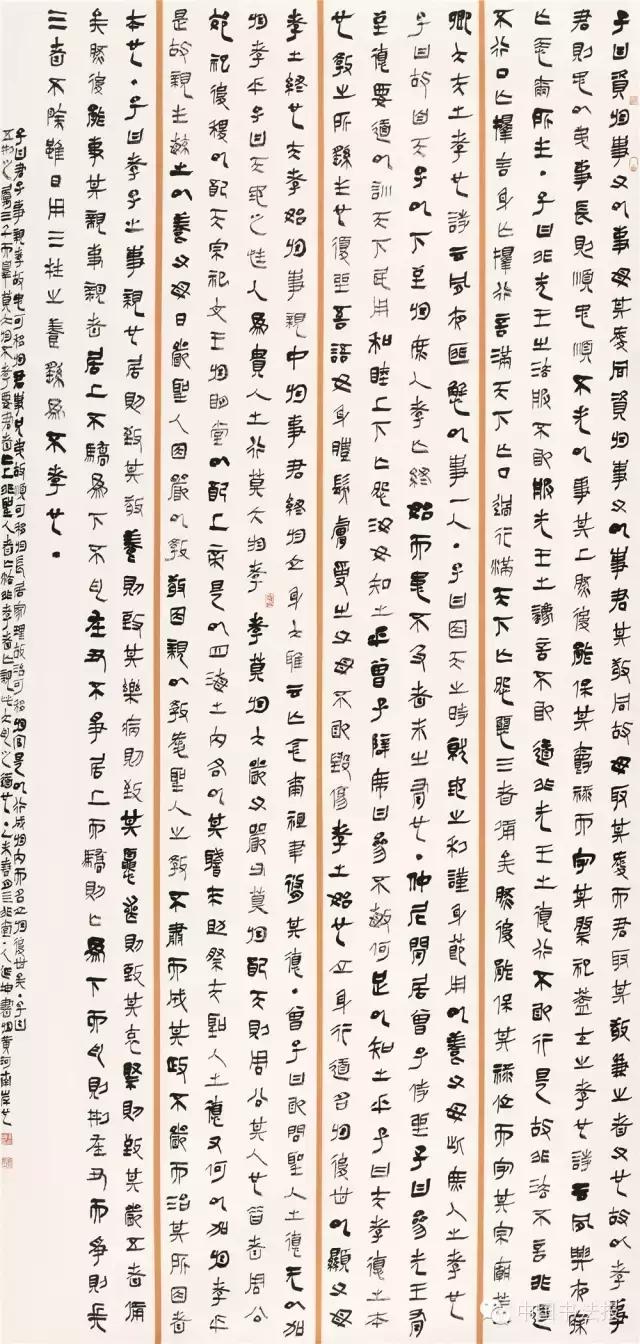 子曰資於事父以事母其愛同資於事父以事君其敬同故母取其愛而君取其敬兼之者父也故以孝事
君則忠以弟事長則順忠順不失以事其上然後能保其爵祿而守其祭祀蓋士之孝也詩云夙興夜寐
亡忝爾所生子曰非先王之法服不敢服先王之法言不敢道非先王之德行不敢行是故非法不言非道
不行口亡擇言身亡擇行言滿天下亡口過行滿天下亡怨惡三者備矣然後能保其祿位而守其宗廟蓋
卿大夫之孝也詩云夙夜匪懈以事一人子曰因天之時就地之利謹身節用以養父母此庶人之孝也
子曰故自天子以下至於庶人孝亡終始而患不及者未之有也仲尼閒居曾子侍坐子曰參先王有
至德要道以訓天下民用和睦上下亡怨汝知之乎曾子避席曰參不敏何足以知之乎子曰夫孝德之本
也教之所繇生也復坐吾語汝身體髮膚受之父母不敢毀傷孝之始也立身行道名於後世以顯父母
孝之終也夫孝始於事親中於事君終於立身大雅云亡念爾祖聿修其德曾子曰敢問聖人之德亡以加
於孝乎子曰天地之性人為貴人之行莫大於孝孝莫於大嚴父嚴父莫於配天則周公其人也昔者周公
郊祀后稷以配天宗祀文王於明堂以配上帝是以四海之內各以其職來助祭夫聖人之德又何以加於孝乎
是故親生毓之以養父母日嚴聖人因嚴以教敬因親以教愛聖人之教不肅而成其政不嚴而治其所因者
本也子曰孝子之事親也居則致其敬養則致其樂病則致其憂喪則致其哀祭則致其嚴五者備
矣然後能事其親事親者居上不驕為下不亂在醜不爭居上而驕則亡為下而亂則刑在醜而爭則兵
三者不除雖日用三牲之養繇為不孝也
子曰君子事親孝故忠可移於君事兄弟故順可移於長居家理故治可移於官是以行成於內而名立於後世矣子曰
五刑之屬三千而辠莫大於不孝要君者亡上非聖人者亡法非孝者亡親此大亂之道也
中国书法报